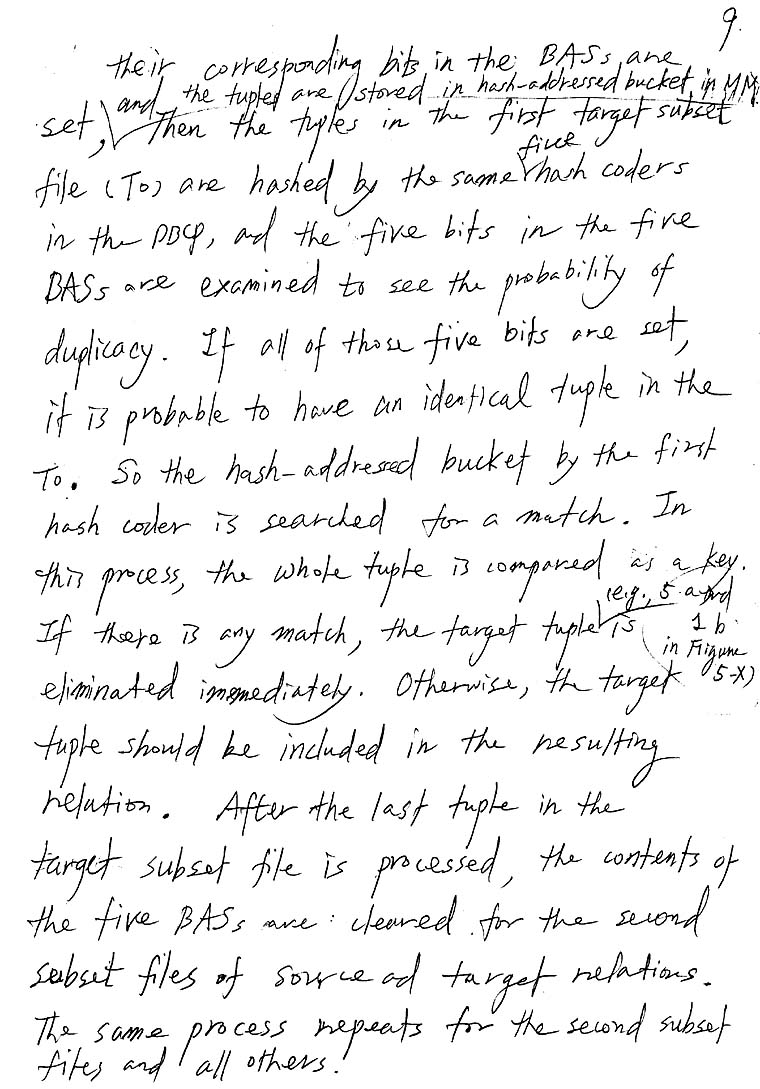 9.
their corresponding bits in the BASs are
and the tuples are stored in hash-addressed bucket in MM.
set, Then the tuples in the first target subset
five
file (To) are hashed by the same hash coders
in the DBCP, ad the five bits in the five
BASs are examined to see the probability of
duplicacy. If all of those five bits are set,
it is probable to have an identical tuple in the
To. So the hash-addressed bucket by the first
hash coder is searched for a match. In
this process, the whole tuple is compared as a key.
(e.g., 5 a and
If there is any match, the target tuple is 1 b
in Figure
eliminated immediately. Otherwise, the target 5-X)
tuple should be included in the resulting
relation. After the last tuple in the
target subset file is processed, the contents of
the five BASs are cleared for the second
subset files of source ad target relations.
The same process repeats for the second subset
files and all others.